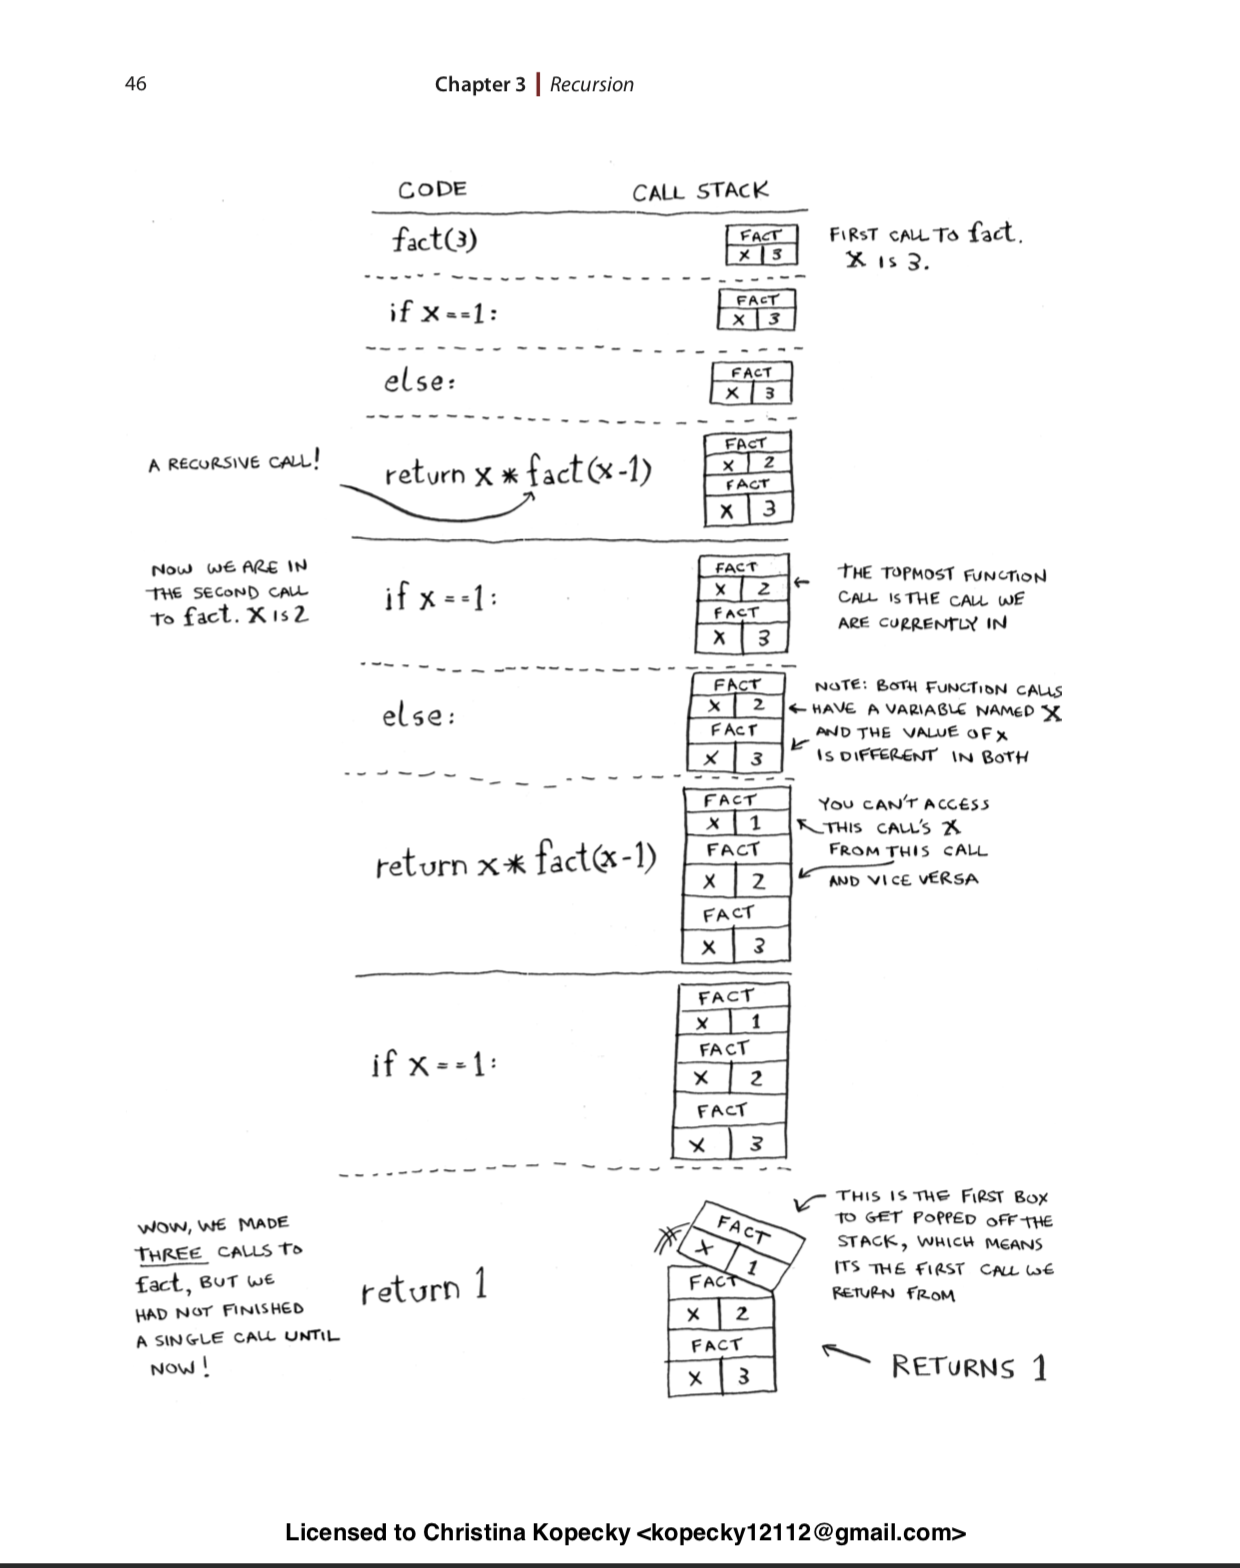 46
Chapter 3 | Recursion
CODE CALL STACK
fact(3)
FACT
X 3
FIRST CALL TO fact.
X IS 3.
if x==1:
FACT
X 3
else:
FACT
X 3
A RECURSIVE CALL!
return x * fact(x-1)
FACT
X 2
FACT
X 3
NOW WE ARE IN
THE SECOND CALL
TO fact. X IS 2
if x==1:
FACT
X 2
FACT
X 3
THE TOPMOST FUNCTION
CALL IS THE CALL WE
ARE CURRENTLY IN
else:
FACT
X 2
FACT
X 3
NOTE: BOTH FUNCTION CALLS
HAVE A VARIABLE NAMED X
AND THE VALUE OF X
IS DIFFERENT IN BOTH
return x * fact(x-1)
FACT
X 1
FACT
X 2
FACT
X 3
YOU CAN'T ACCESS
THIS CALL'S X
FROM THIS CALL
AND VICE VERSA
if x==1:
FACT
X 1
FACT
X 2
FACT
X 3
WOW, WE MADE
THREE CALLS TO
fact, BUT WE
HAD NOT FINISHED
A SINGLE CALL UNTIL
NOW!
return 1
FACT
X 1
FACT
X 2
FACT
X 3
THIS IS THE FIRST BOX
TO GET POPPED OFF THE
STACK, WHICH MEANS
ITS THE FIRST CALL WE
RETURN FROM
RETURNS 1
Licensed to Christina Kopecky <kopecky12112@gmail.com>